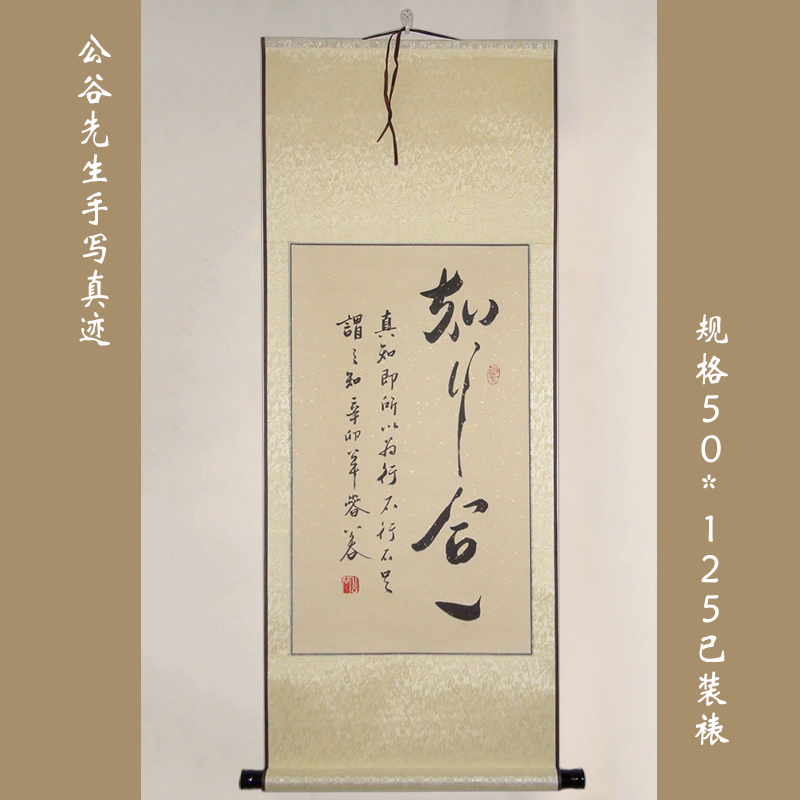 公谷先生手写真迹
知行合一
真知即所以為行不行不足
謂之知辛卯年公谷
规格50*125已装裱